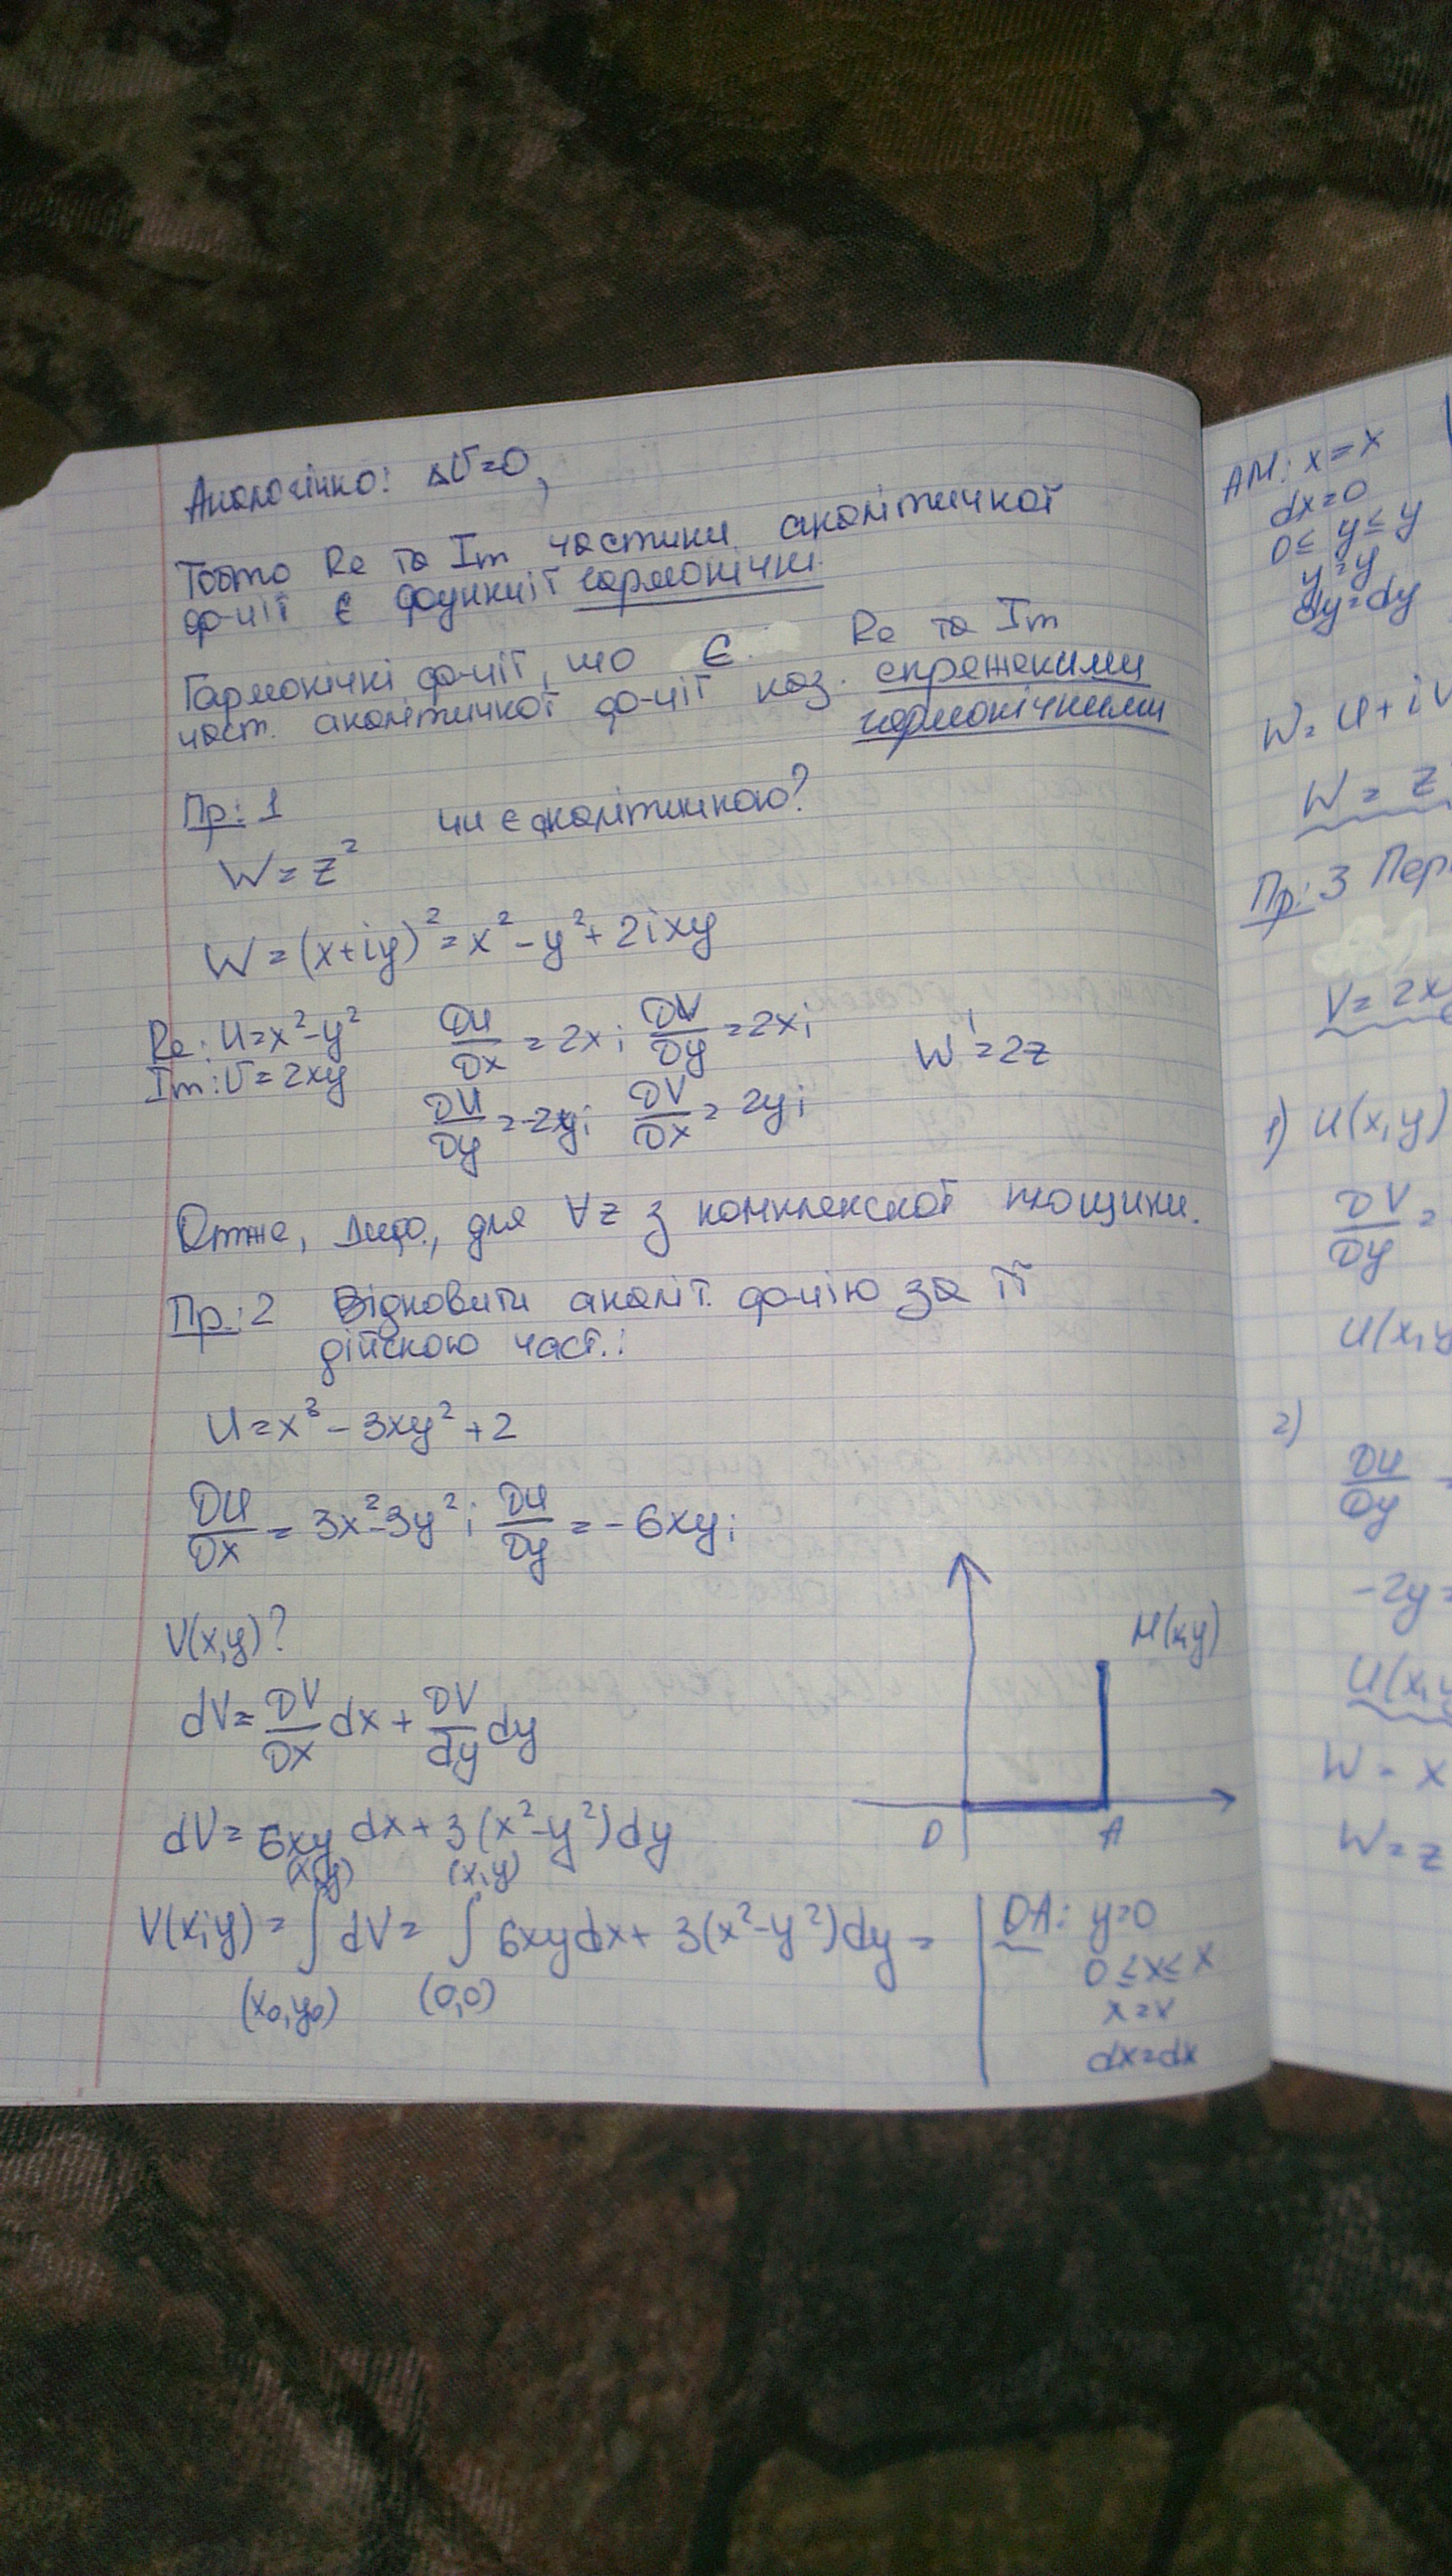 Аналогічно: ΔV=0,
Тобто Re та Im частини аналітичної
ф-ції є функції гармонічні.
Гармонічні ф-ції, що є Re та Im
част. аналітичної ф-ції наз. спряженими
гармонічними
Пр: 1 чи є аналітичною?
W = z²
W = (x+iy)² = x² - y² + 2ixy
Re: U = x² - y² ∂U/∂x = 2x; ∂V/∂y = 2x; W' = 2z
Im: V = 2xy ∂U/∂y = -2y; ∂V/∂x = 2y;
Отже, диф., для ∀z з комплексної площини.
Пр: 2 Відновити аналіт. ф-цію за її
дійсною част.:
U = x³ - 3xy² + 2
∂U/∂x = 3x² - 3y²; ∂U/∂y = -6xy;
V(x,y)?
dV = ∂V/∂x dx + ∂V/dy dy
dV = 6xy dx + 3(x² - y²)dy
M(x,y)
O A
V(x;y) = ∫ dV = ∫ 6xydx + 3(x² - y²)dy =
(x,y) (x,y)
(x₀,y₀) (0,0)
OA: y=0
0 ≤ x ≤ x
x = x
dx = dx
AM: x = x
dx = 0
0 ≤ y ≤ y
y = y
dy = dy
W = U + iV
W = z
Пр: 3
V = 2x
1) U(x,y)
∂V/∂y =
U(x,y
2)
∂U/∂y =
-2y =
U(x,y
W = x
W = z